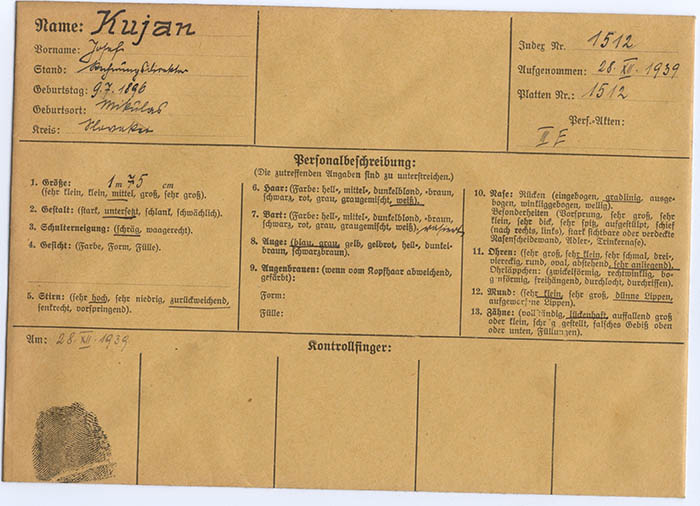 Name: Kujan
Vorname: Josef
Stand: Rechnungsdirektor
Geburtstag: 9.7.1896
Geburtsort: Mikulas
Kreis: Slovakei
Index Nr. 1512
Aufgenommen: 28. XII. 1939
Platten Nr.: 1512
Pers.-Akten:
III E
Personalbeschreibung:
(Die zutreffenden Angaben sind zu unterstreichen.)
1. Größe: 1 m 75 cm
(sehr klein, klein, mittel, groß, sehr groß).
2. Gestalt: (stark, untersetzt, schlank, schwächlich).
3. Schulterneigung: (schräg, waagerecht).
4. Gesicht: (Farbe, Form, Fülle).
5. Stirn: (sehr hoch, sehr niedrig, zurückweichend,
senkrecht, vorspringend).
6. Haar: (Farbe: hell-, mittel-, dunkelblond, -braun,
schwarz, rot, grau, graugemischt, weiß).
7. Bart: (Farbe: hell-, mittel-, dunkelblond, -braun,
schwarz, rot, grau, graugemischt, weiß). rasiert
8. Auge: (blau, grau, gelb, gelbrot, hell-, dunkel-
braun, schwarzbraun).
9. Augenbrauen: (wenn vom Kopfhaar abweichend,
gefärbt):
Form:
Fülle:
10. Nase: Rücken (eingebogen, gradlinig, ausge-
bogen, winkliggebogen, wellig).
Besonderheiten (Vorsprung, sehr groß, sehr
klein, sehr dick, sehr spitz, aufgestülpt, schief
(nach rechts, links), stark sichtbare oder verdeckte
Nasenscheidewand, Adler-, Trinkernase).
11. Ohren: (sehr groß, sehr klein, sehr schmal, drei-,
viereckig, rund, oval, abstehend, sehr anliegend).
Ohrläppchen: (zwickelförmig, rechtwinklig, bo-
genförmig, freihängend, durchlocht, durchrissen).
12. Mund: (sehr klein, sehr groß, dünne Lippen,
aufgeworfene Lippen).
13. Zähne: (vollständig, lückenhaft, auffallend groß
oder klein, schräg gestellt, falsches Gebiß oben
oder unten, Füllungen).
Am: 28. XII. 1939
Kontrollfinger: